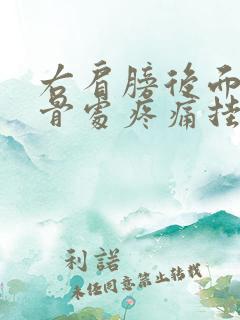 右肩膀後面
骨處疼痛挂
利諾
未经同意禁止转载